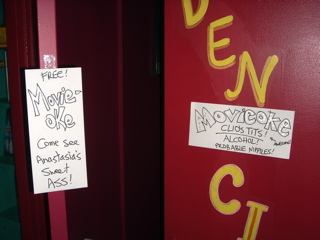 FREE!
Movie-
oke
Come see
Anastasia's
Sweet
ASS!
DEN
Movieoke
CLIOS TITS!
ALCOHOL!
PROBABLE NIPPLES!
AWESOME
CI